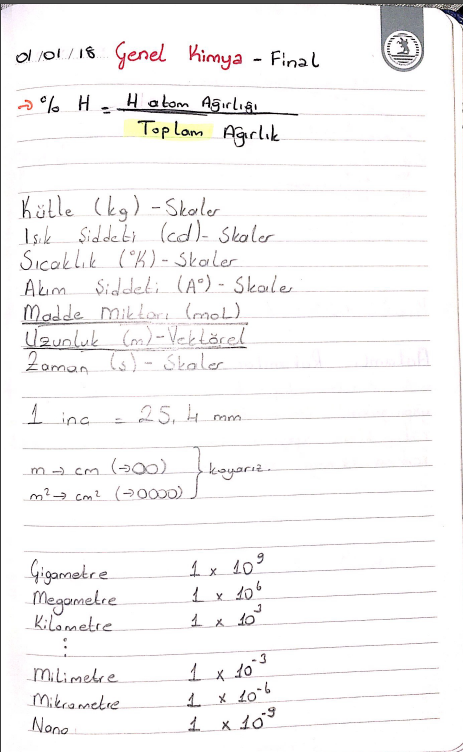 01/01/18 Genel Kimya - Final
→ % H = H atom Ağırlığı
Toplam Ağırlık
Kütle (kg) - Skaler
Işık Şiddeti (cd) - Skaler
Sıcaklık (°K) - Skaler
Akım Şiddeti (A°) - Skaler
Madde Miktarı (mol)
Uzunluk (m) - Vektörel
Zaman (s) - Skaler
1 inç = 25,4 mm
m → cm (→00) } koyarız.
m² → cm² (→0000)
Gigametre 1 x 10⁹
Megametre 1 x 10⁶
Kilometre 1 x 10³
⋮
Milimetre 1 x 10⁻³
Mikrometre 1 x 10⁻⁶
Nano 1 x 10⁻⁹